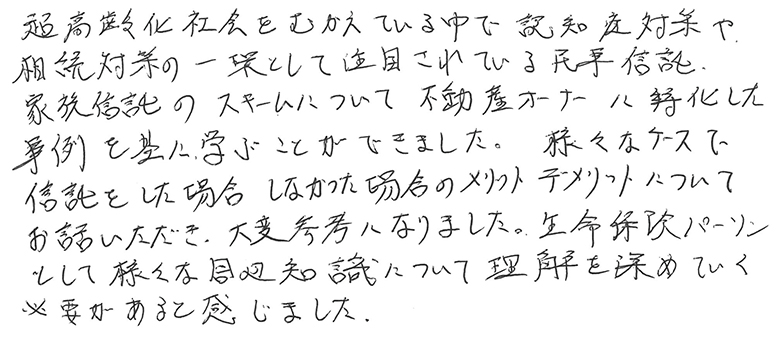 超高齢化社会をむかえている中で認知症対策や
相続対策の一環として注目されている民事信託.
家族信託のスキームについて不動産オーナーに特化した
事例を基に学ぶことができました。様々なケースで
信託をした場合しなかった場合のメリットデメリットについて
お話いただき、大変参考になりました。生命保険パーソン
として様々な周辺知識について理解を深めていく
必要があると感じました.